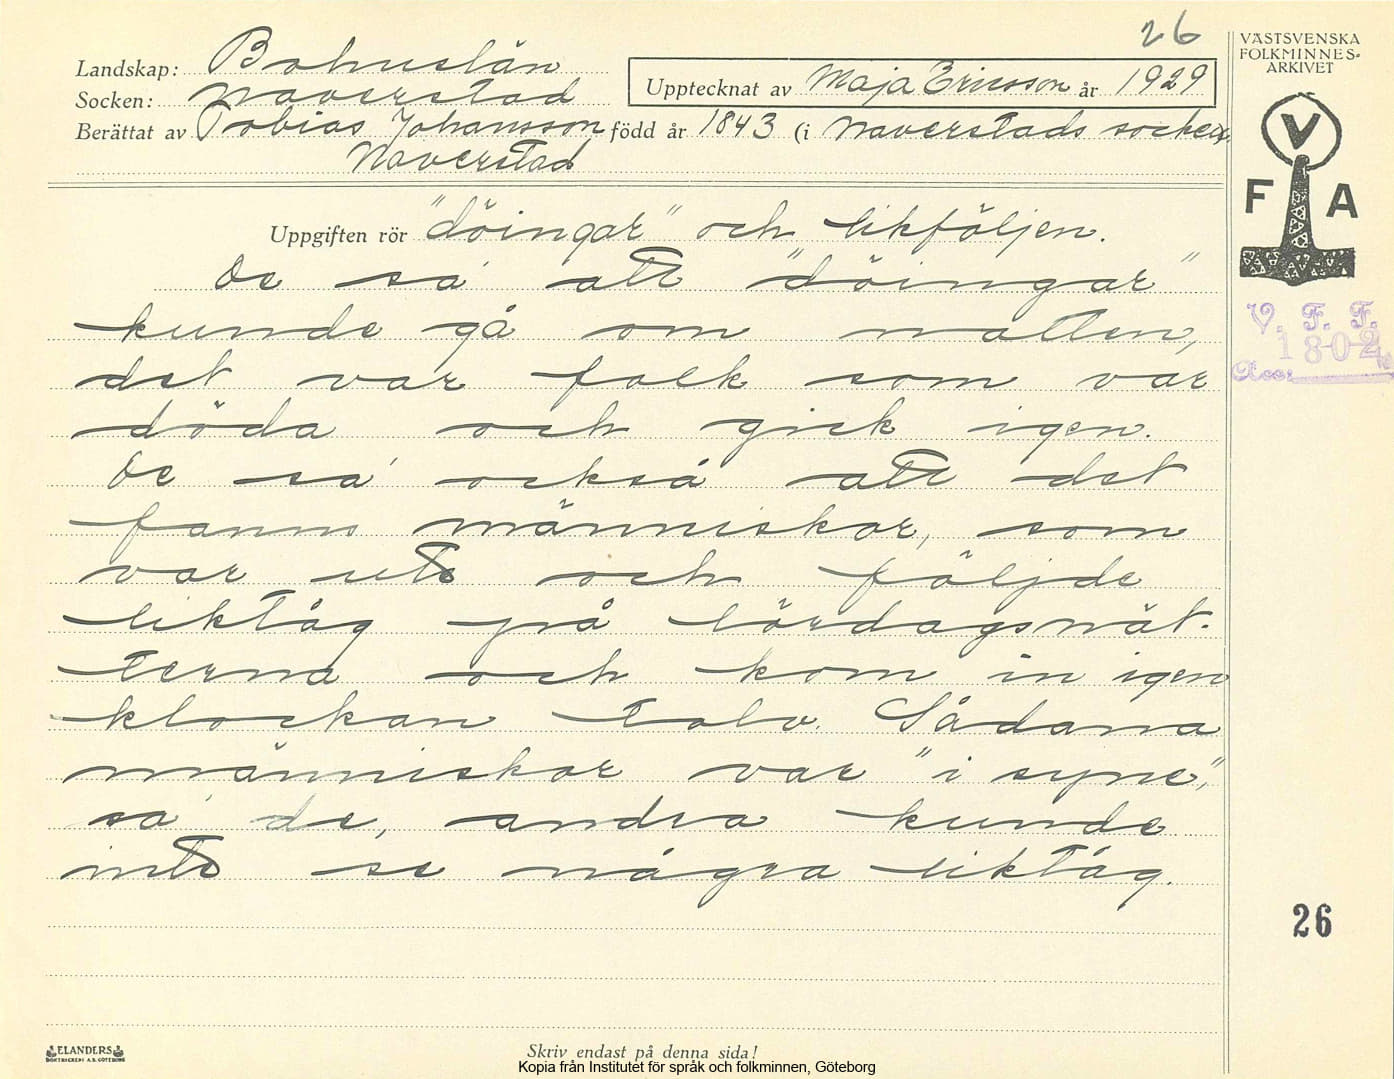 26
Landskap: Bohuslän
Socken: Naverstad
Upptecknat av Maja Ericsson år 1929
Berättat av Tobias Johansson född år 1843 (i Naverstads socken.
Naverstad
VÄSTSVENSKA
FOLKMINNES-
ARKIVET
V
F A
V. F. F.
1802
Acc:
Uppgiften rör "döingar" och likföljen.
De sa' att "döingar"
kunde gå om natten,
det var folk som var
döda och gick igen.
De sa' också att det
fanns människor, som
var ute och följde
liktåg på lördagsnät-
terna och kom in igen
klockan tolv. Sådana
människor var "i syne",
sa' de, andra kunde
inte se några liktåg.
26
ELANDERS
BOKTRYCKERI A.B. GÖTEBORG
Skriv endast på denna sida!
Kopia från Institutet för språk och folkminnen, Göteborg